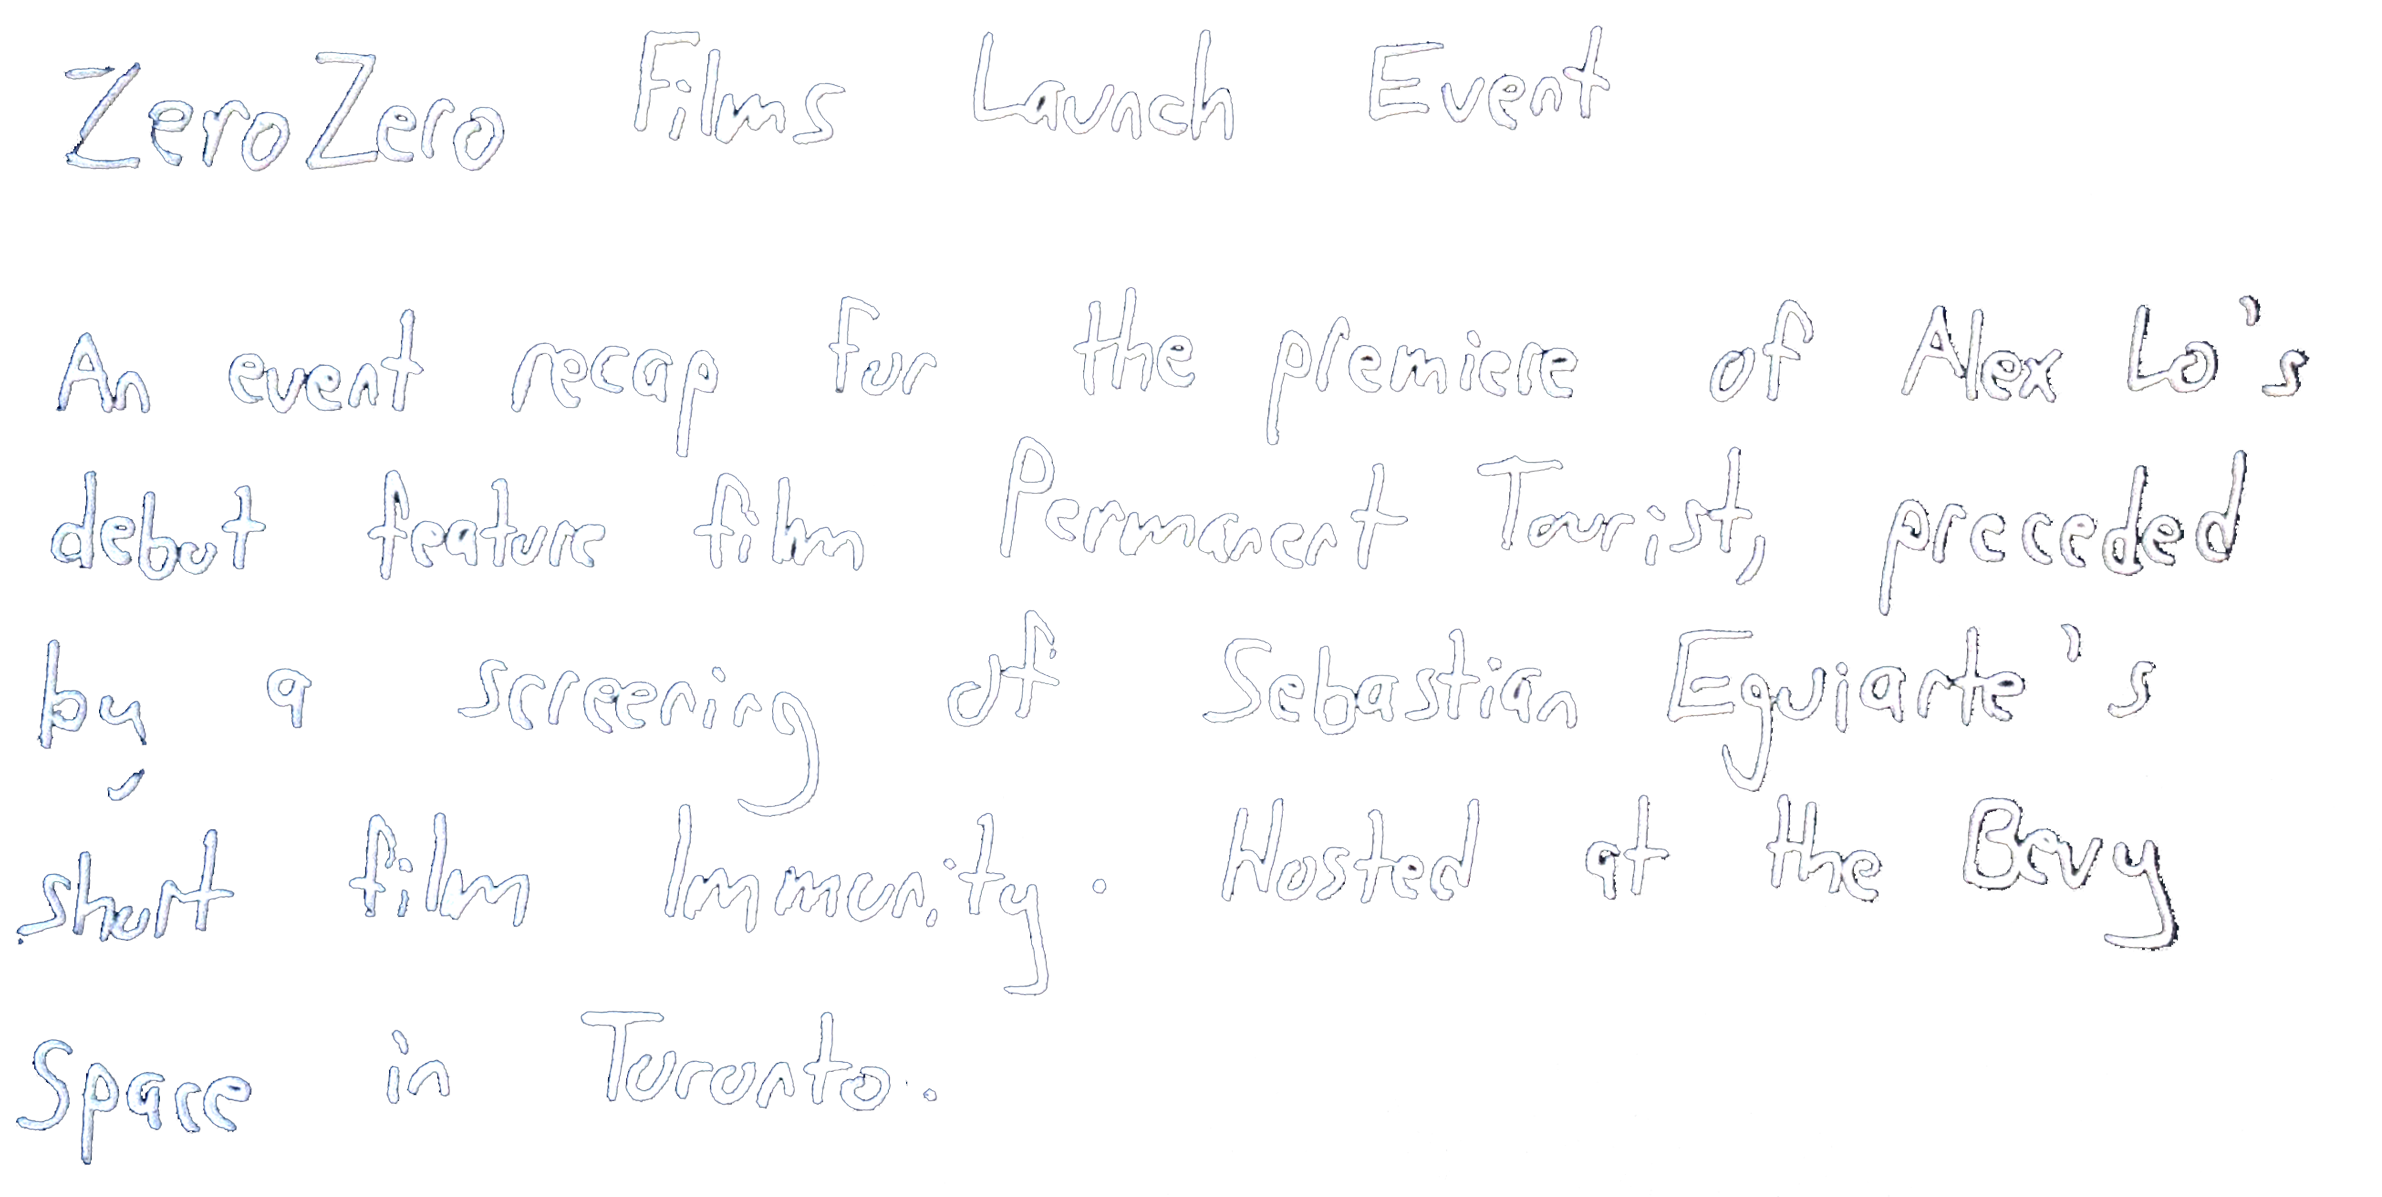 ZeroZero Films Launch Event
An event recap for the premiere of Alex Lo's
debut feature film Permanent Tourist, preceded
by a screening of Sebastian Eguiarte's
short film Immunity. Hosted at the Bevy
Space in Toronto.